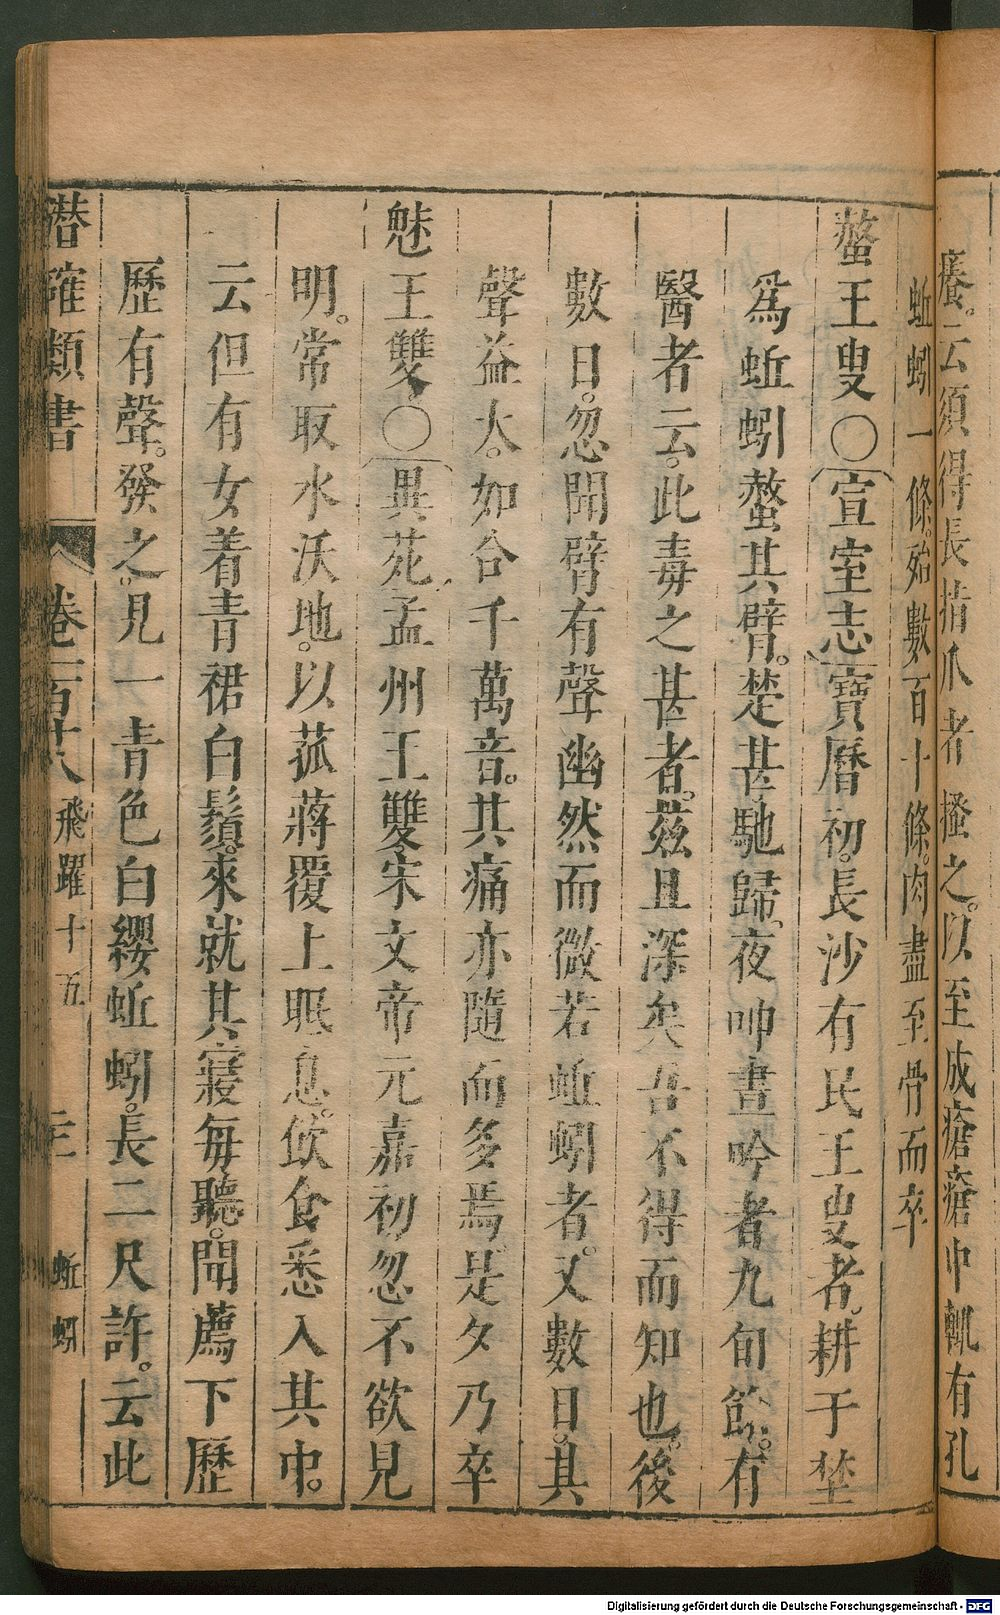 癢。云須得長指爪者搔之。以至成瘡瘡中輒有孔
蚯蚓一條。殆數百十條。肉盡至骨而卒
螫王叟〇宣室志寶曆初。長沙有民王叟者。耕于埜
爲蚯蚓螫其臂。楚甚馳歸。夜呻晝吟者九旬餘。有
醫者云。此毒之甚者。茲且深矣吾不得而知也。後
數日。忽聞臂有聲幽然而微若蚯蚓者。又數日。其
聲益大。如合千萬音。其痛亦隨而多焉。是夕乃卒
魅王雙〇異苑孟州王雙宋文帝元嘉初忽不欲見
明。常取水沃地。以菰蔣覆上眠息。飲食悉入其中。
云但有女着青裙白鬚。來就其寢每聽。聞薦下歷
歷有聲。發之。見一青色白纓蚯蚓。長二尺許。云此
潛確類書 卷一百十八 飛躍十五 二十一 蚯蚓
Digitalisierung gefördert durch die Deutsche Forschungsgemeinschaft - DFG